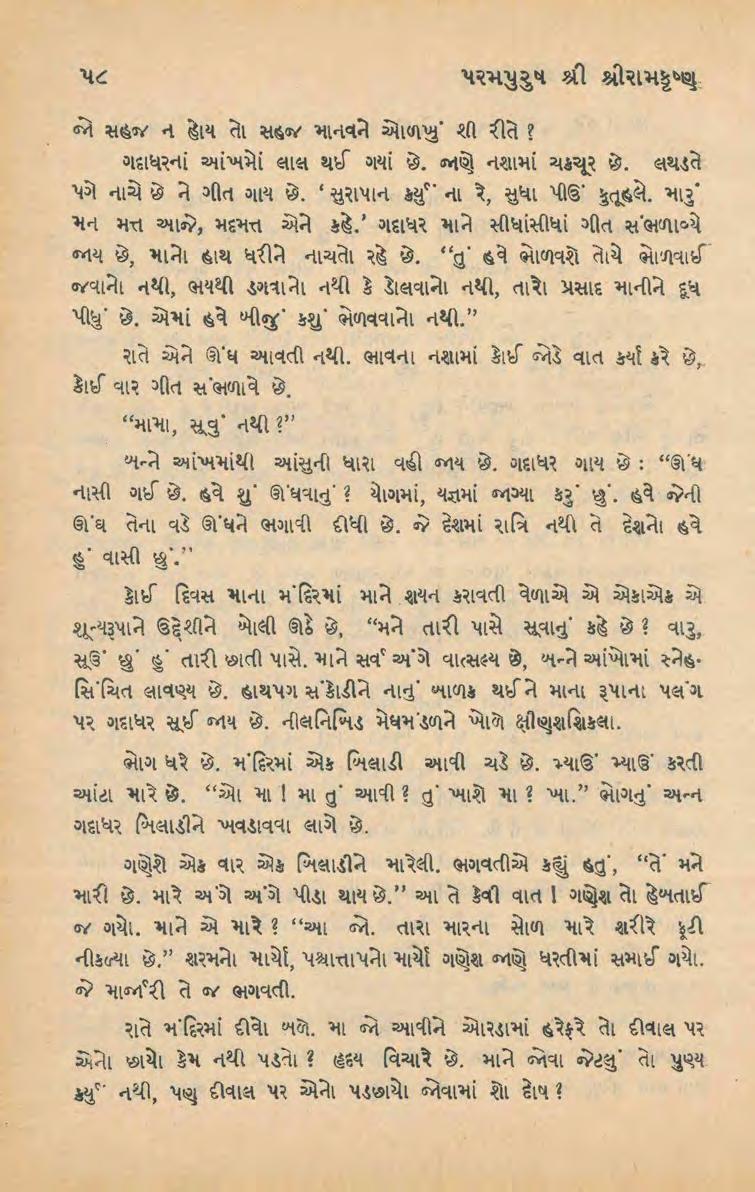 ૫૮ પરમપુરુષ શ્રી શ્રીરામકૃષ્ણ
જો સહજ ન હોય તો સહજ માનવને ઓળખું શી રીતે ?
ગદાધરનાં આંખમોં લાલ થઈ ગયાં છે. જાણે નશામાં ચકચૂર છે. લથડતે
પગે નાચે છે ને ગીત ગાય છે. ‘સુરાપાન કર્યું ના રે, સુધા પીઉં કુતૂહલે. મારું
મન મત્ત આજે, મદમત્ત એને કહે.’ ગદાધર માને સીધાંસીધાં ગીત સંભળાવ્યે
જાય છે, માનો હાથ ધરીને નાચતો રહે છે. “તું હવે ભોળવશે તોયે ભોળવાઈ
જવાનો નથી, ભયથી ડગવાનો નથી કે ડોલવાનો નથી, તારો પ્રસાદ માનીને દૂધ
પીધું છે. એમાં હવે બીજું કશું ભેળવવાનો નથી.”
રાતે એને ઊંઘ આવતી નથી. ભાવના નશામાં કોઈ જોડે વાત કર્યા કરે છે,
કોઈ વાર ગીત સંભળાવે છે.
“મામા, સૂવું નથી ?”
બન્ને આંખમાંથી આંસુની ધારા વહી જાય છે. ગદાધર ગાય છે : “ઊંઘ
નાસી ગઈ છે. હવે શું ઊંઘવાનું ? યોગમાં, યજ્ઞમાં જાગ્યા કરું છું. હવે જેની
ઊંઘ તેના વડે ઊંઘને ભગાવી દીધી છે. જે દેશમાં રાત્રિ નથી તે દેશનો હવે
હું વાસી છું.”
કોઈ દિવસ માના મંદિરમાં માને શયન કરાવતી વેળાએ એ એકાએક એ
શૂન્યરૂપાને ઉદ્દેશીને બોલી ઊઠે છે, “મને તારી પાસે સૂવાનું કહે છે ? વારુ,
સૂઉં છું હું તારી છાતી પાસે. માને સર્વ અંગે વાત્સલ્ય છે, બન્ને આંખોમાં સ્નેહ-
સિંચિત લાવણ્ય છે. હાથપગ સંકોડીને નાનું બાળક થઈને માના રૂપાના પલંગ
પર ગદાધર સૂઈ જાય છે. નીલનિબિડ મેઘમંડળને ખોળે ક્ષીણશશિકલા.
ભોગ ધરે છે. મંદિરમાં એક બિલાડી આવી ચડે છે. મ્યાઉં મ્યાઉં કરતી
આંટા મારે છે. “ઓ મા ! મા તું આવી ? તું ખાશે મા ? ખા.” ભોગનું અન્ન
ગદાધર બિલાડીને ખવડાવવા લાગે છે.
ગણેશે એક વાર એક બિલાડીને મારેલી. ભગવતીએ કહ્યું હતું, “તેં મને
મારી છે. મારે અંગે અંગે પીડા થાય છે.” આ તે કેવી વાત ! ગણેશ તો હેબતાઈ
જ ગયો. માને એ મારે ? “આ જો. તારા મારના સોળ મારે શરીરે ફૂટી
નીકળ્યા છે.” શરમનો માર્યો, પશ્ચાત્તાપનો માર્યો ગણેશ જાણે ધરતીમાં સમાઈ ગયો.
જે માર્જારી તે જ ભગવતી.
રાતે મંદિરમાં દીવો બળે. મા જો આવીને ઓરડામાં હરેફરે તો દીવાલ પર
એનો છાયો કેમ નથી પડતો ? હૃદય વિચારે છે. માને જોવા જેટલું તો પુણ્ય
કર્યું નથી, પણ દીવાલ પર એનો પડછાયો જોવામાં શો દોષ ?